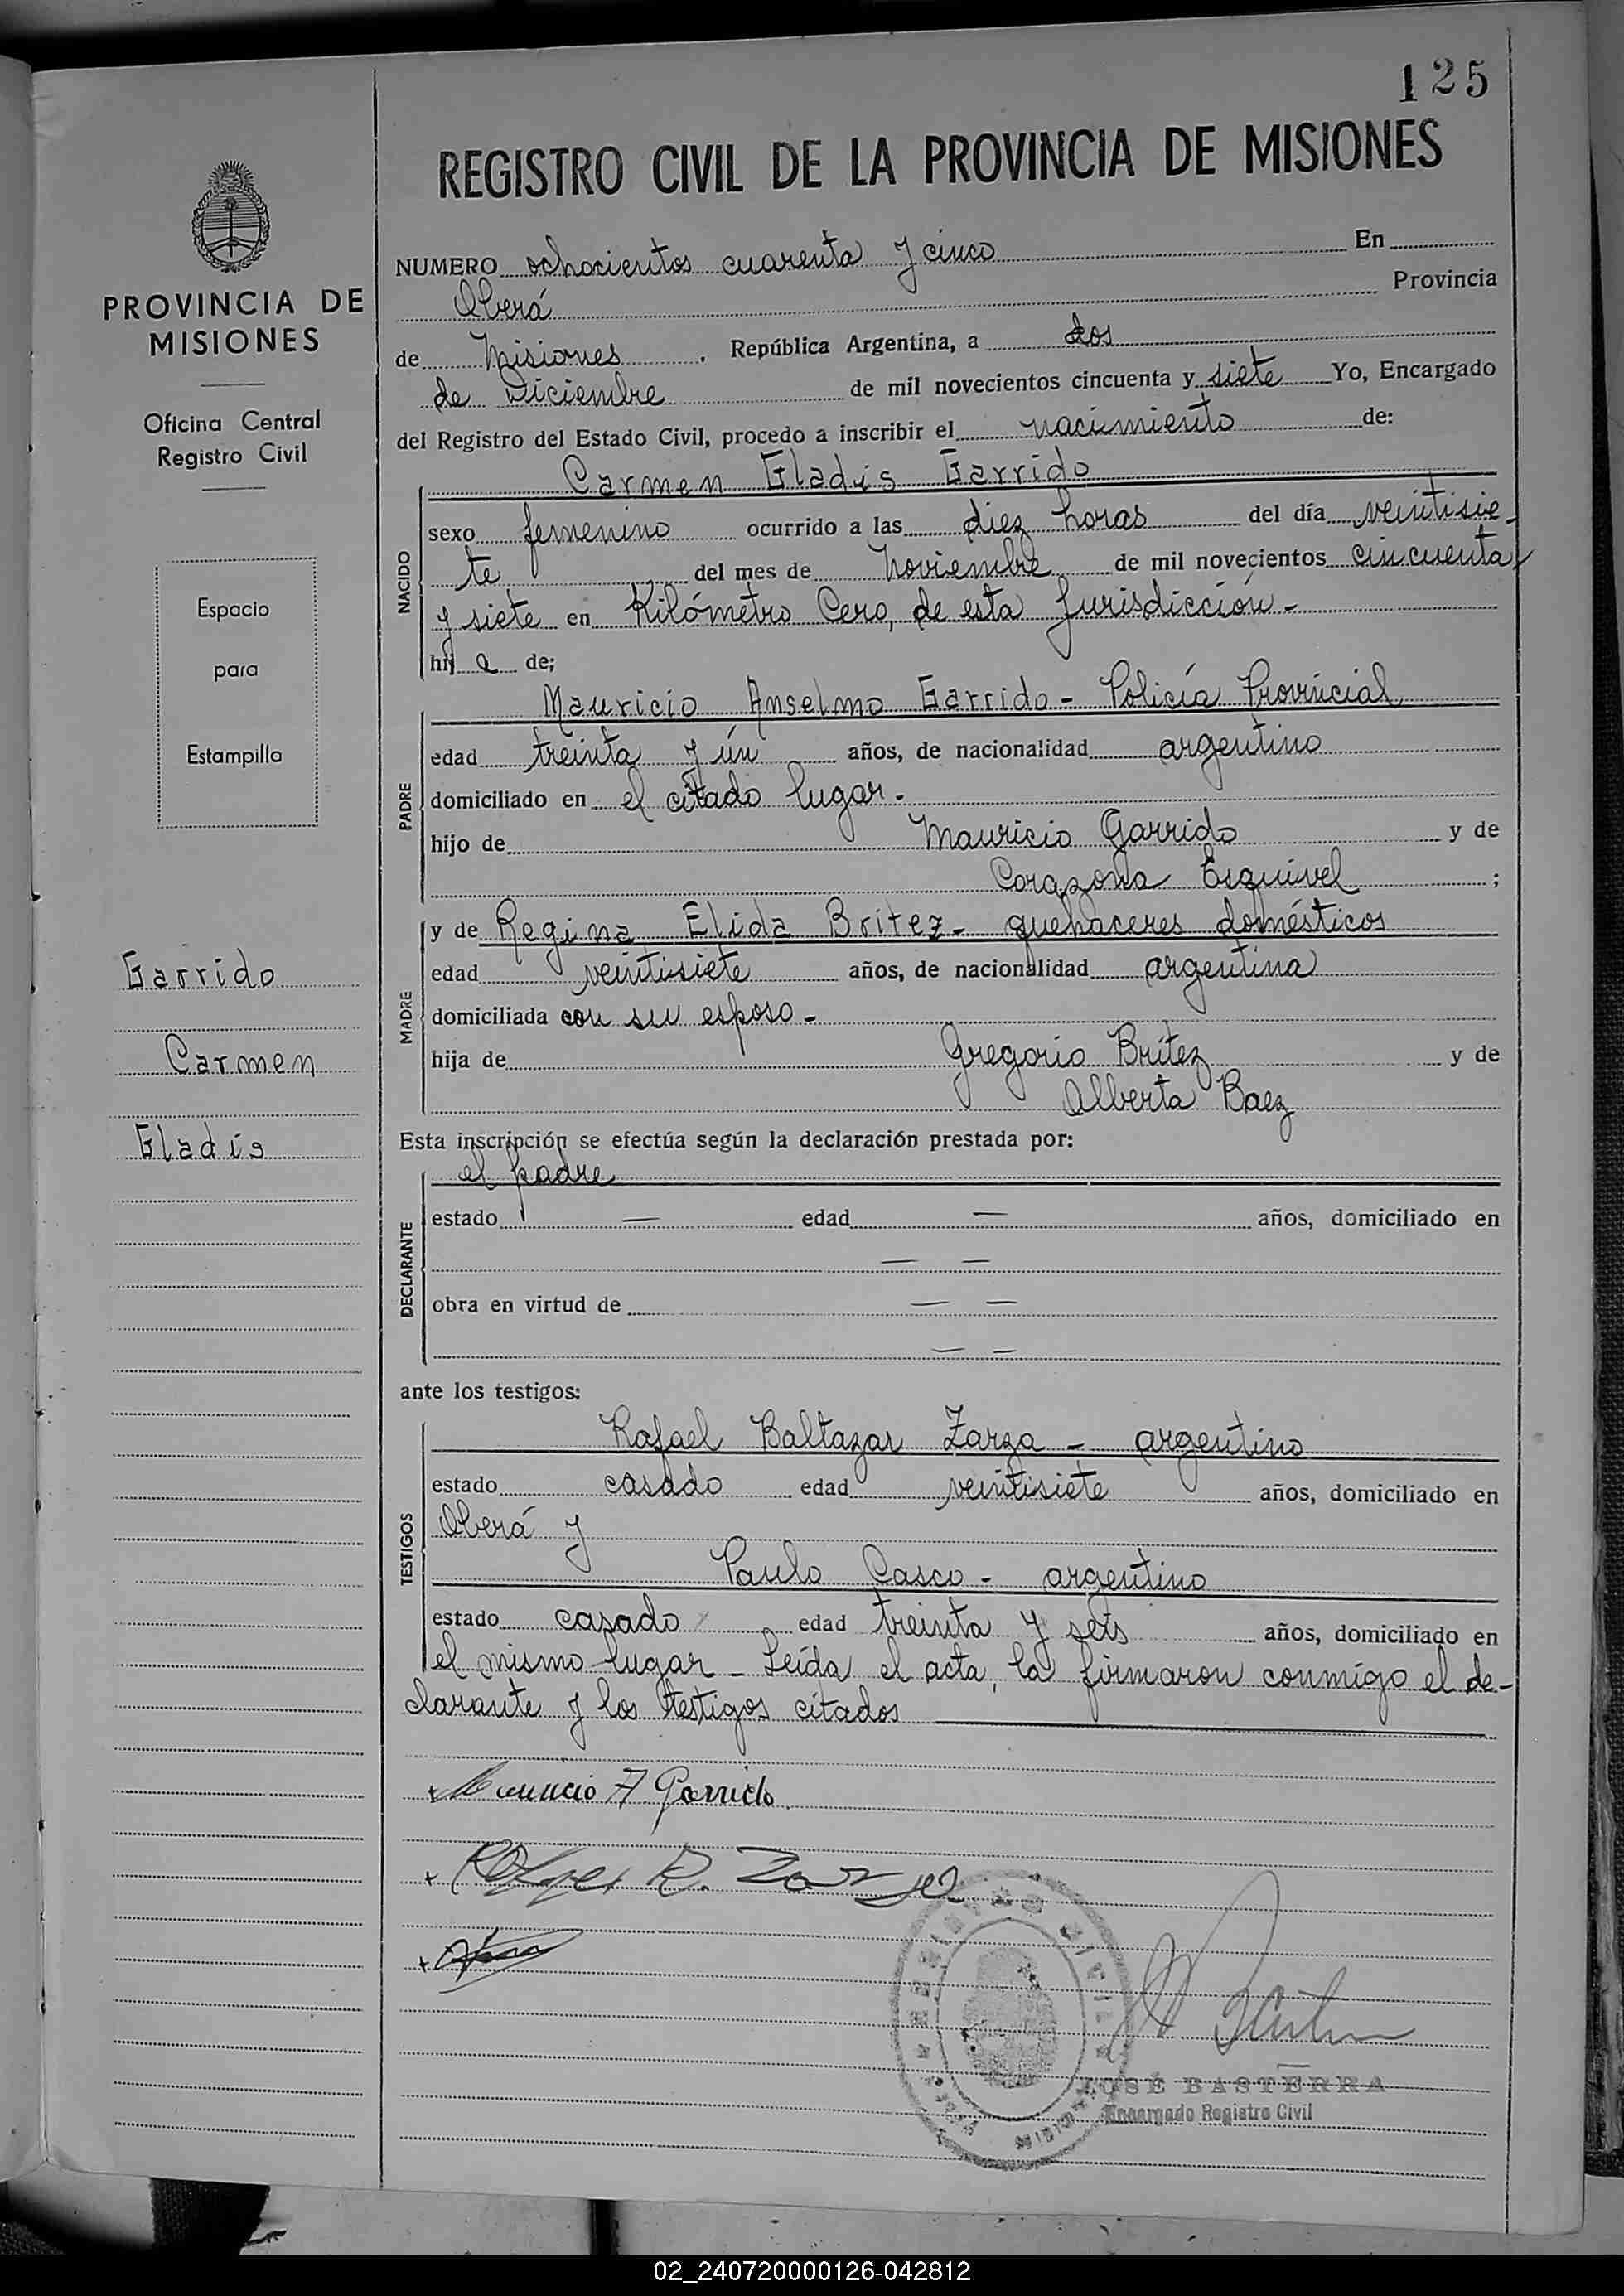 125
REGISTRO CIVIL DE LA PROVINCIA DE MISIONES
PROVINCIA DE
MISIONES
Oficina Central
Registro Civil
Espacio
para
Estampilla
Garrido
Carmen
Gladis
NUMERO ochocientos cuarenta y cinco En
Oberá Provincia
de Misiones, República Argentina, a dos
de Diciembre de mil novecientos cincuenta y siete Yo, Encargado
del Registro del Estado Civil, procedo a inscribir el nacimiento de:
Carmen Gladis Garrido
NACIDO
sexo femenino ocurrido a las diez horas del día veintisie-
te del mes de Noviembre de mil novecientos cincuenta
y siete en Kilómetro Cero, de esta Jurisdicción-
hij a de;
Mauricio Anselmo Garrido - Policía Provincial
PADRE
edad treinta y ún años, de nacionalidad argentino
domiciliado en el citado lugar.
hijo de Mauricio Garrido y de
Corazona Esquivel ;
y de Regina Elida Britez - quehaceres domésticos
MADRE
edad veintisiete años, de nacionalidad argentina
domiciliada con su esposo -
hija de Gregorio Britez y de
Alberta Baez
Esta inscripción se efectúa según la declaración prestada por:
el padre
DECLARANTE
estado — edad — años, domiciliado en
— —
obra en virtud de — —
— —
ante los testigos:
Rafael Baltazar Zarza - argentino
TESTIGOS
estado casado edad veintisiete años, domiciliado en
Oberá y
Paulo Casco - argentino
estado casado edad treinta y seis años, domiciliado en
el mismo lugar - Leída el acta, la firmaron conmigo el de-
clarante y los testigos citados
Mauricio A Garrido
JOSÉ BASTERRA
Encargado Registro Civil
02_240720000126-042812